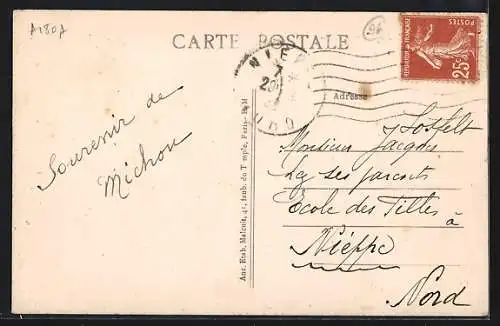 A180A
96
CARTE POSTALE
POSTES
REPUBLIQUE FRANÇAISE
25c
NIEPPE
7
20
NORD
Adresse
Souvenir de
Michou
Anc. Etab. Malcuit, 41, faub. du Temple, Paris
Monsieur Jacques
ses parents
Ecole des Filles
à
Niéppe
Nord